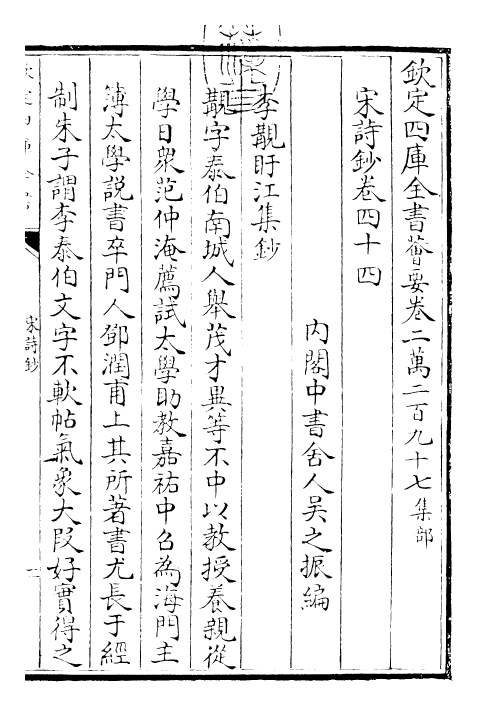 欽定四庫全書薈要卷二萬二百九十七集部
宋詩鈔卷四十四
內閣中書舍人吳之振編
李覯盱江集鈔
覯字泰伯南城人舉茂才異等不中以教授養親從
學日衆范仲淹薦試太學助教嘉祐中召為海門主
簿太學説書卒門人鄧潤甫上其所著書尤長于經
制朱子謂李泰伯文字不軟帖氣象大段好實得之
宋詩鈔